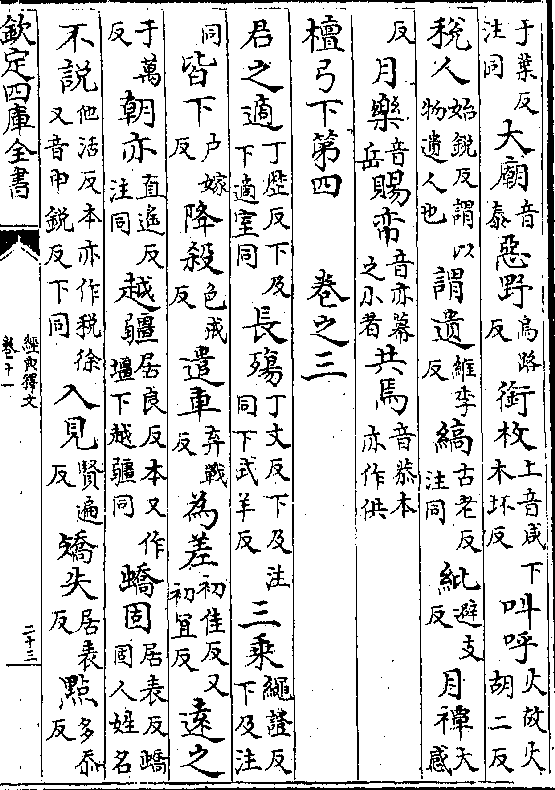 于葉反注同大廟音泰惡野烏路反銜枚上音咸下木坏反叫呼火故火胡二反
稅人始銳反謂以物遺人也謂遺維季反縞古老反注同紕避支反月禫大感
反月樂音岳賜帟音亦幕之小者共焉音恭本亦作供
檀弓下第四　卷之三
君之適丁歷反下及下適室同長殤丁丈反下及注同下式羊反三乘繩證反下及注
同皆下户嫁反降殺色戒反遣車弃戰反為差初佳反又初宜反遠之
于萬反朝亦直遙反注同越疆居良反本又作壃下越疆同蟜固居表反蟜固人姓名
不說他活反本亦作稅徐又音申銳反下同入見賢遍反矯失居表反點多忝反
欽定四庫全書
經典釋文
卷十一
二十三